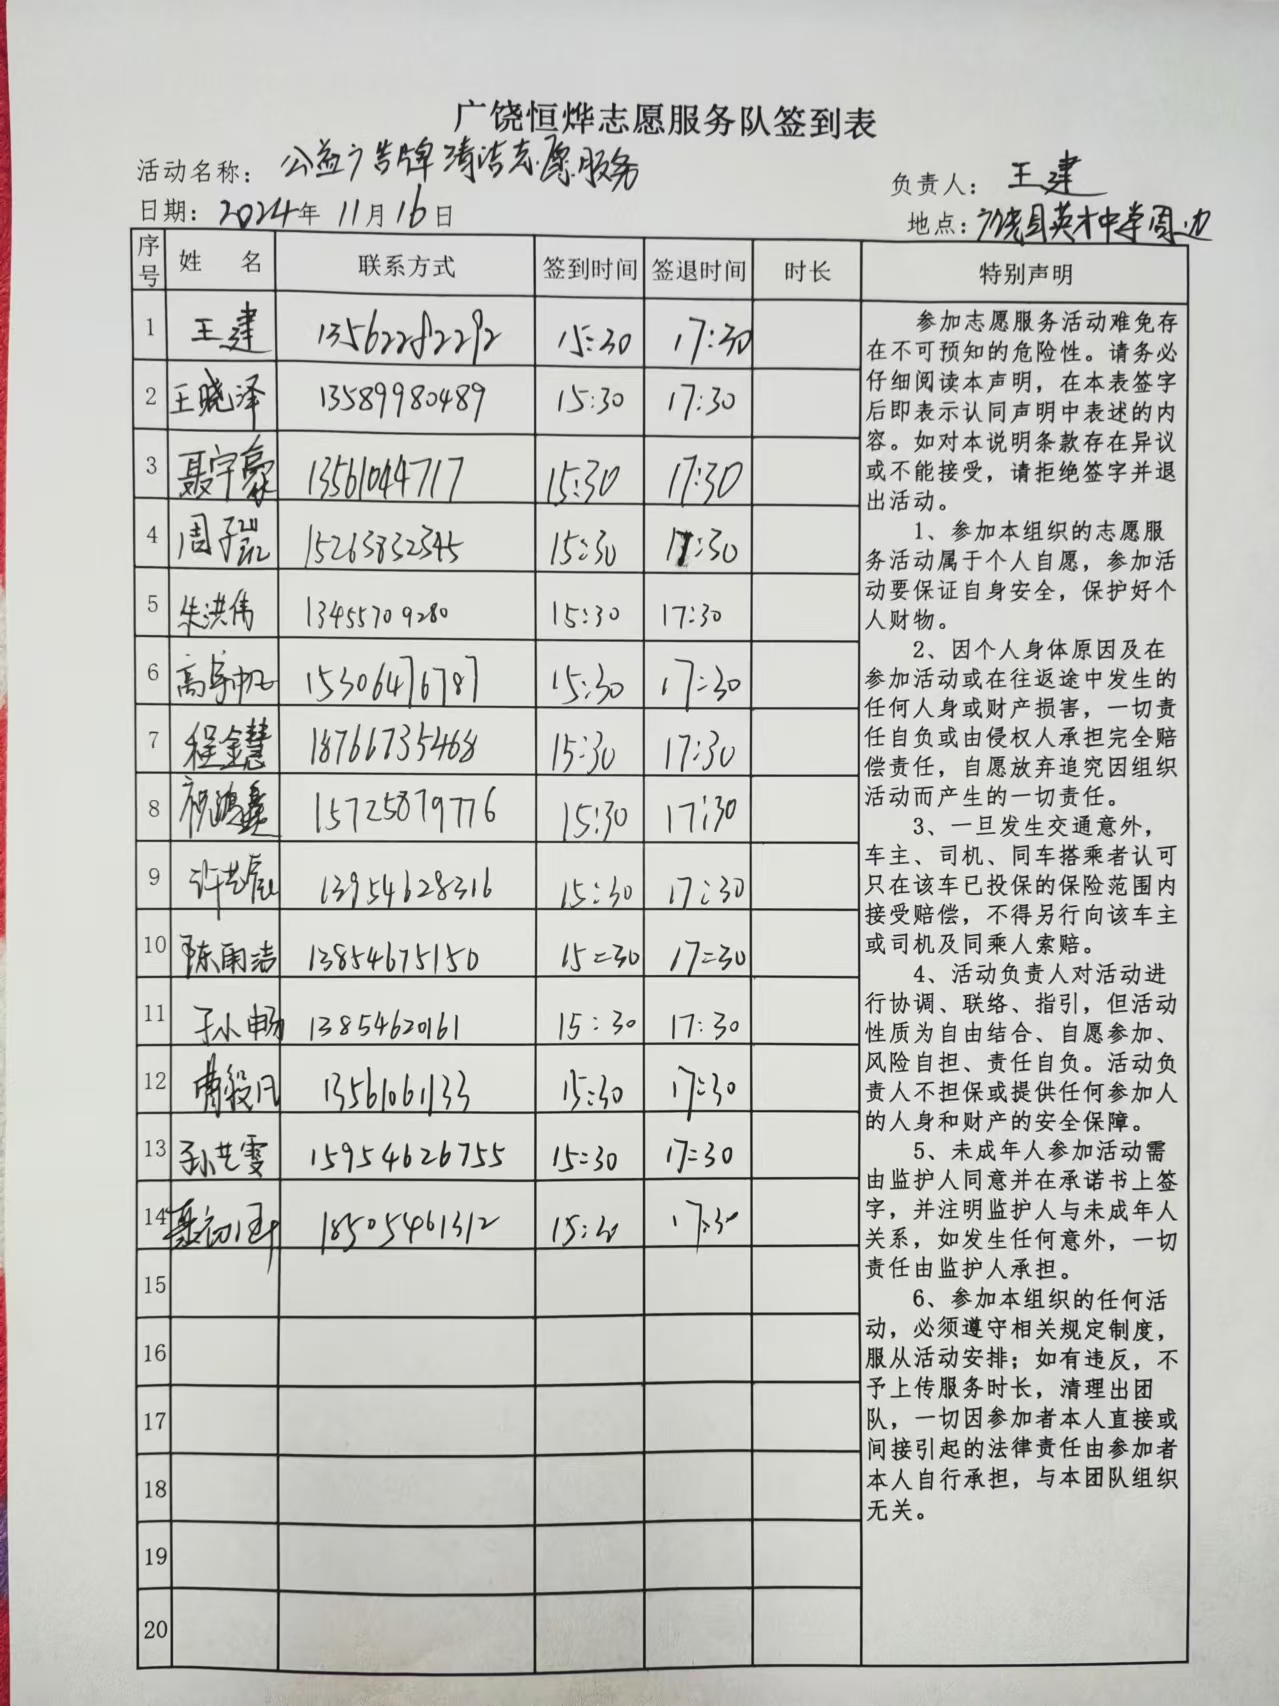 广饶恒烨志愿服务队签到表
活动名称：公益广告牌清洁志愿服务
负责人：王建
日期：2024年11月16日
地点：广饶县英才中学周边
序号 姓 名 联系方式 签到时间 签退时间 时长 特别声明
1 王建 13562282292 15:30 17:30
2 王晓泽 13589980489 15:30 17:30
3 聂宇豪 13561044717 15:30 17:30
4 周子凯 15263832345 15:30 17:30
5 朱洪伟 13455709280 15:30 17:30
6 高 15306476787 15:30 17:30
7 程金慧 18766735468 15:30 17:30
8 祝鸿鑫 15725879776 15:30 17:30
9 许艺宸 13954628316 15:30 17:30
10 陈雨洁 13854675150 15:30 17:30
11 孙小畅 13854620161 15:30 17:30
12 13561061133 15:30 17:30
13 孙艺雯 15954626755 15:30 17:30
14 聂 18505461312 15:30 17:30
15
16
17
18
19
20
参加志愿服务活动难免存
在不可预知的危险性。请务必
仔细阅读本声明，在本表签字
后即表示认同声明中表述的内
容。如对本说明条款存在异议
或不能接受，请拒绝签字并退
出活动。
1、参加本组织的志愿服
务活动属于个人自愿，参加活
动要保证自身安全，保护好个
人财物。
2、因个人身体原因及在
参加活动或在往返途中发生的
任何人身或财产损害，一切责
任自负或由侵权人承担完全赔
偿责任，自愿放弃追究因组织
活动而产生的一切责任。
3、一旦发生交通意外，
车主、司机、同车搭乘者认可
只在该车已投保的保险范围内
接受赔偿，不得另行向该车主
或司机及同乘人索赔。
4、活动负责人对活动进
行协调、联络、指引，但活动
性质为自由结合、自愿参加、
风险自担、责任自负。活动负
责人不担保或提供任何参加人
的人身和财产的安全保障。
5、未成年人参加活动需
由监护人同意并在承诺书上签
字，并注明监护人与未成年人
关系，如发生任何意外，一切
责任由监护人承担。
6、参加本组织的任何活
动，必须遵守相关规定制度，
服从活动安排；如有违反，不
予上传服务时长，清理出团
队，一切因参加者本人直接或
间接引起的法律责任由参加者
本人自行承担，与本团队组织
无关。